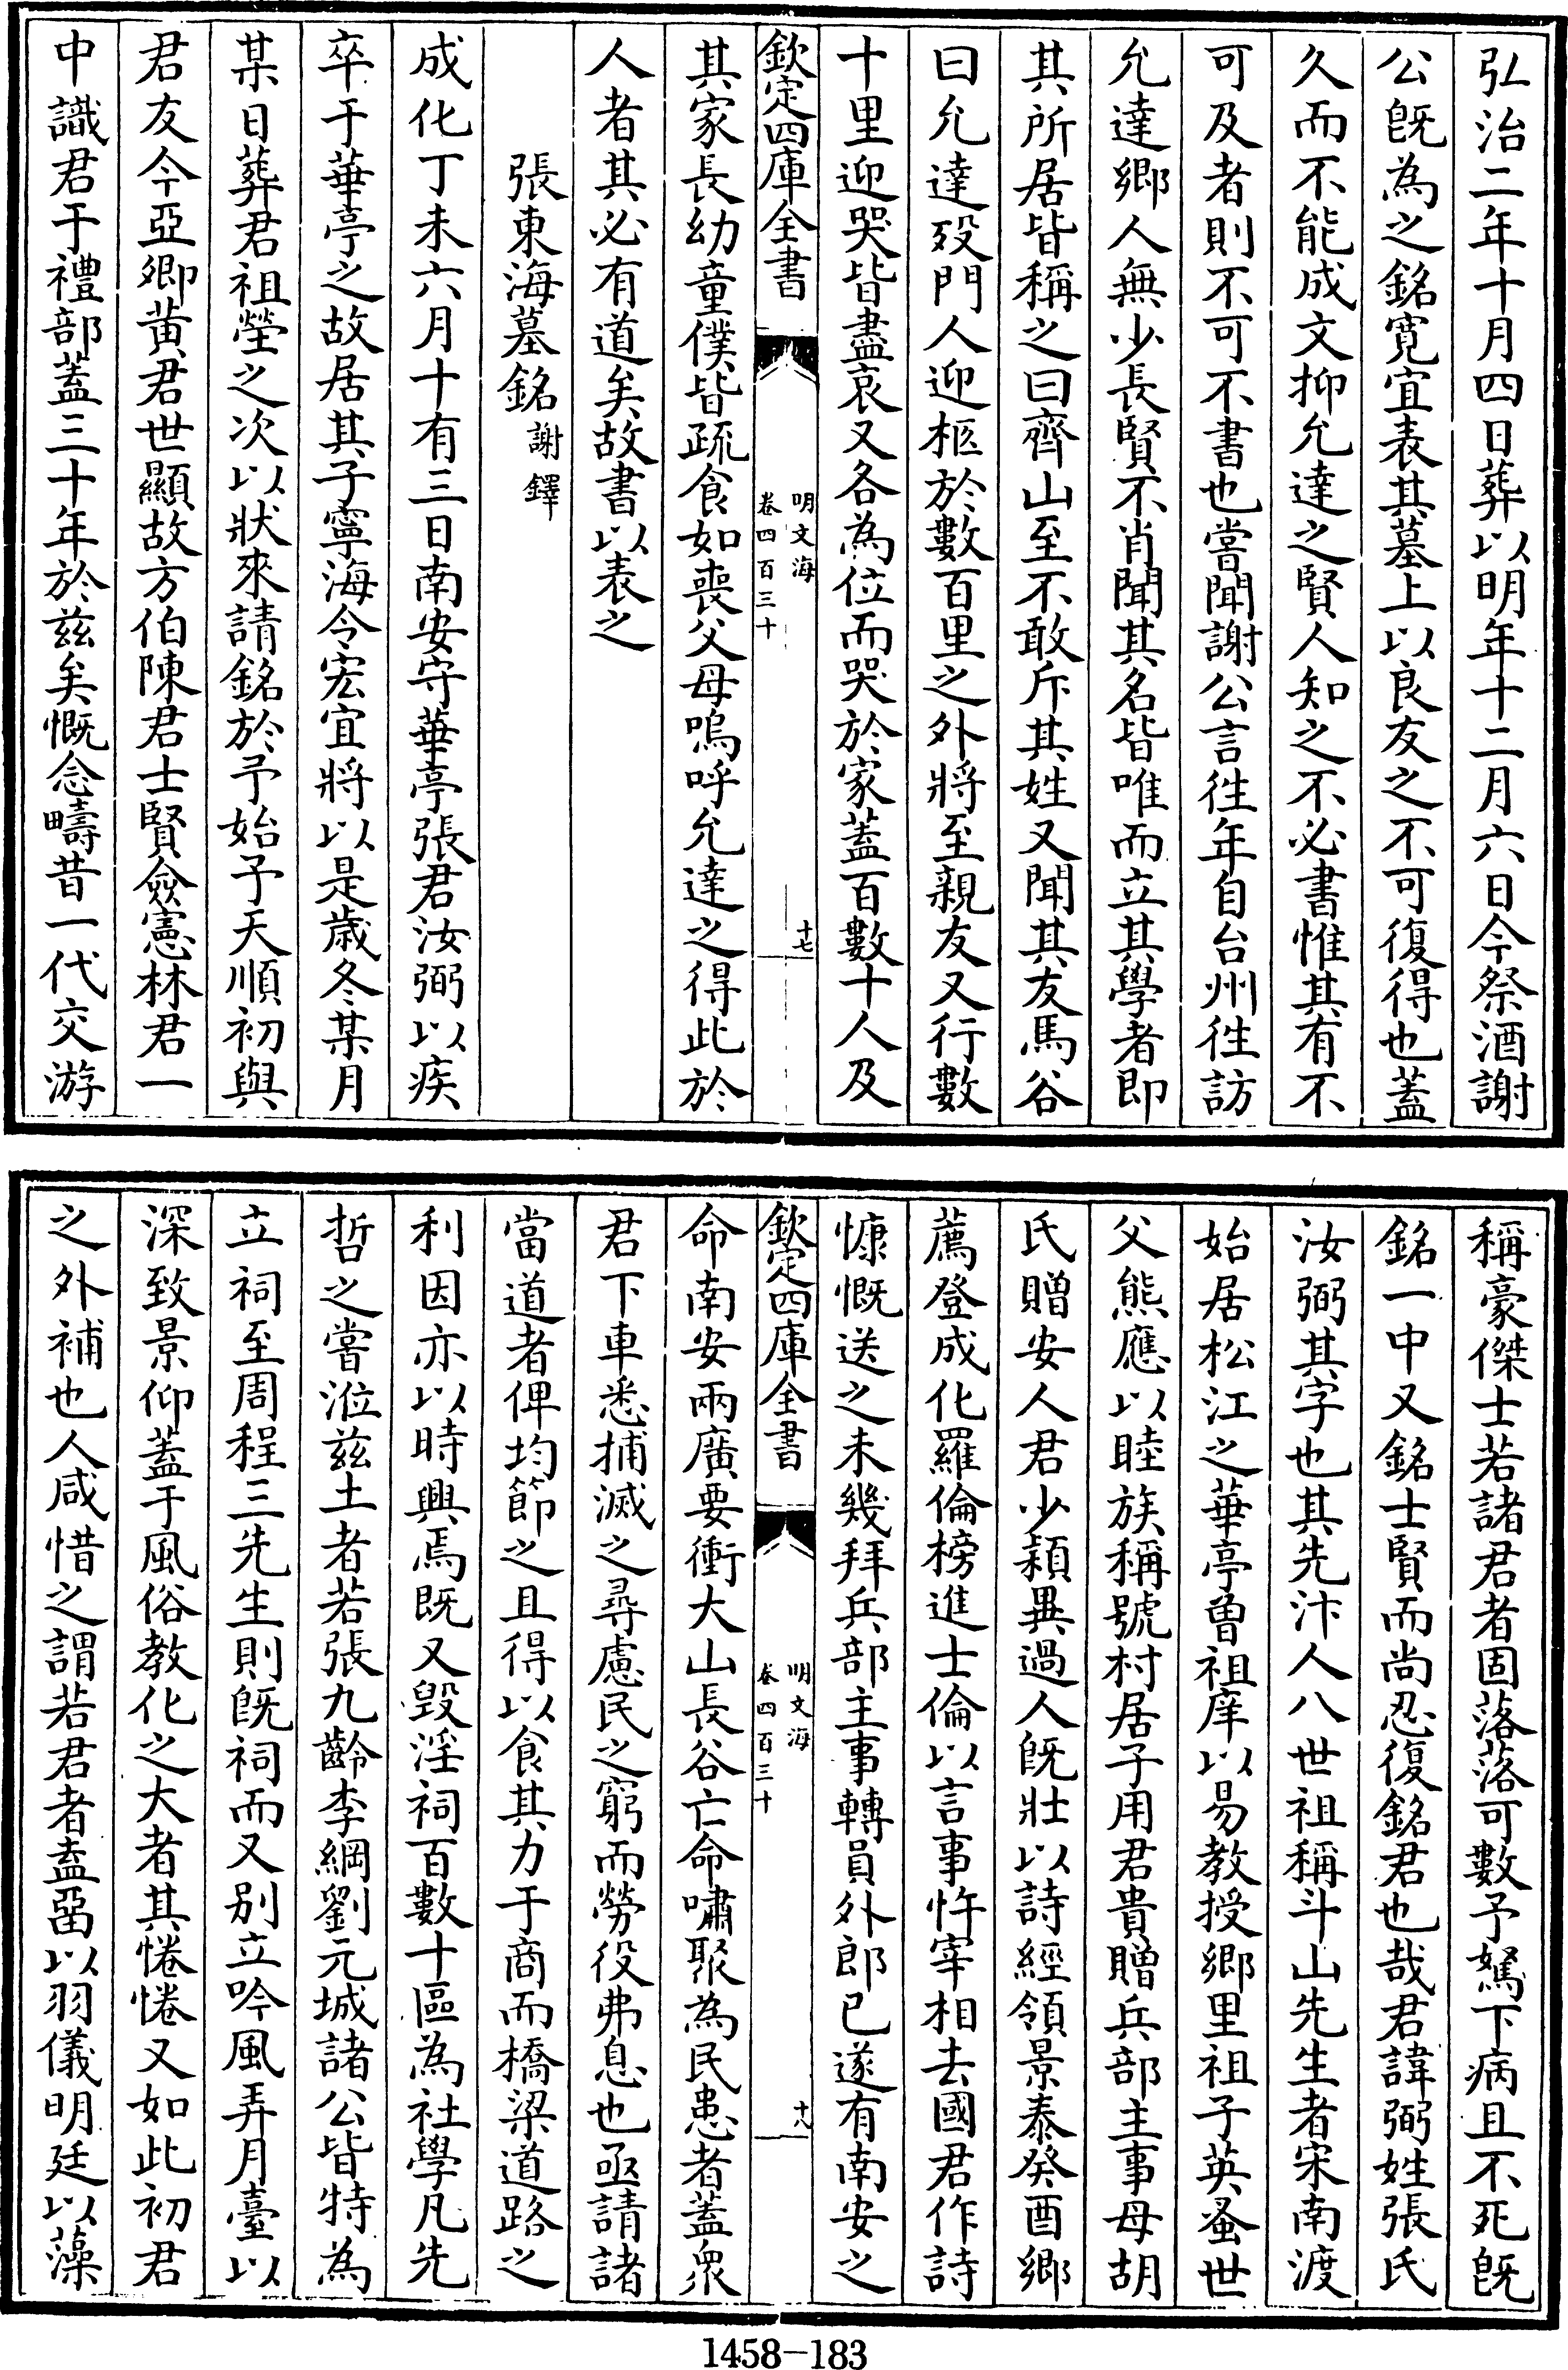 弘治二年十月四日葬以明年十二月六日今祭酒謝
公旣為之銘寛宜表其墓上以良友之不可復得也蓋
久而不能成文抑允達之賢人知之不必書惟其有不
可及者則不可不書也嘗聞謝公言徃年自台州徃訪
允達鄉人無少長賢不肖聞其名皆唯而立其學者即
其所居皆稱之曰齊山至不敢斥其姓又聞其友馬谷
曰允達殁門人迎柩於數百里之外將至親友又行數
十里迎哭皆盡哀又各為位而哭於家蓋百數十人及
欽定四庫全書
明文海
卷四百三十
十七
其家長幼童僕皆疏食如喪父母嗚呼允達之得此於
人者其必有道矣故書以表之
張東海墓銘 謝鐸
成化丁未六月十有三日南安守華亭張君汝弼以疾
卒于華亭之故居其子寧海令宏宜將以是歲冬某月
某日葬君祖塋之次以狀來請銘於予始予天順初與
君友今亞卿黃君世顯故方伯陳君士賢僉憲林君一
中識君于禮部蓋三十年於兹矣慨念疇昔一代交游
稱豪傑士若諸君者固落落可數予駑下病且不死旣
銘一中又銘士賢而尚忍復銘君也哉君諱弼姓張氏
汝弼其字也其先汴人八世祖稱斗山先生者宋南渡
始居松江之華亭曾祖庠以易教授鄉里祖子英蚤世
父熊應以睦族稱號村居子用君貴贈兵部主事母胡
氏贈安人君少穎異過人旣壯以詩經領景泰癸酉鄉
薦登成化羅倫榜進士倫以言事忤宰相去國君作詩
慷慨送之未幾拜兵部主事轉員外郎已遂有南安之
欽定四庫全書
明文海
卷四百三十
十八
命南安兩廣要衝大山長谷亡命嘯聚為民患者蓋衆
君下車悉捕滅之尋慮民之窮而勞役弗息也亟請諸
當道者俾均節之且得以食其力于商而橋梁道路之
利因亦以時興焉既又毀淫祠百數十區為社學凡先
哲之嘗涖兹土者若張九齡李綱劉元城諸公皆特為
立祠至周程三先生則旣祠而又别立吟風弄月臺以
深致景仰蓋于風俗教化之大者其惓惓又如此初君
之外補也人咸惜之謂若君者盍畱以羽儀明廷以藻
1458-183